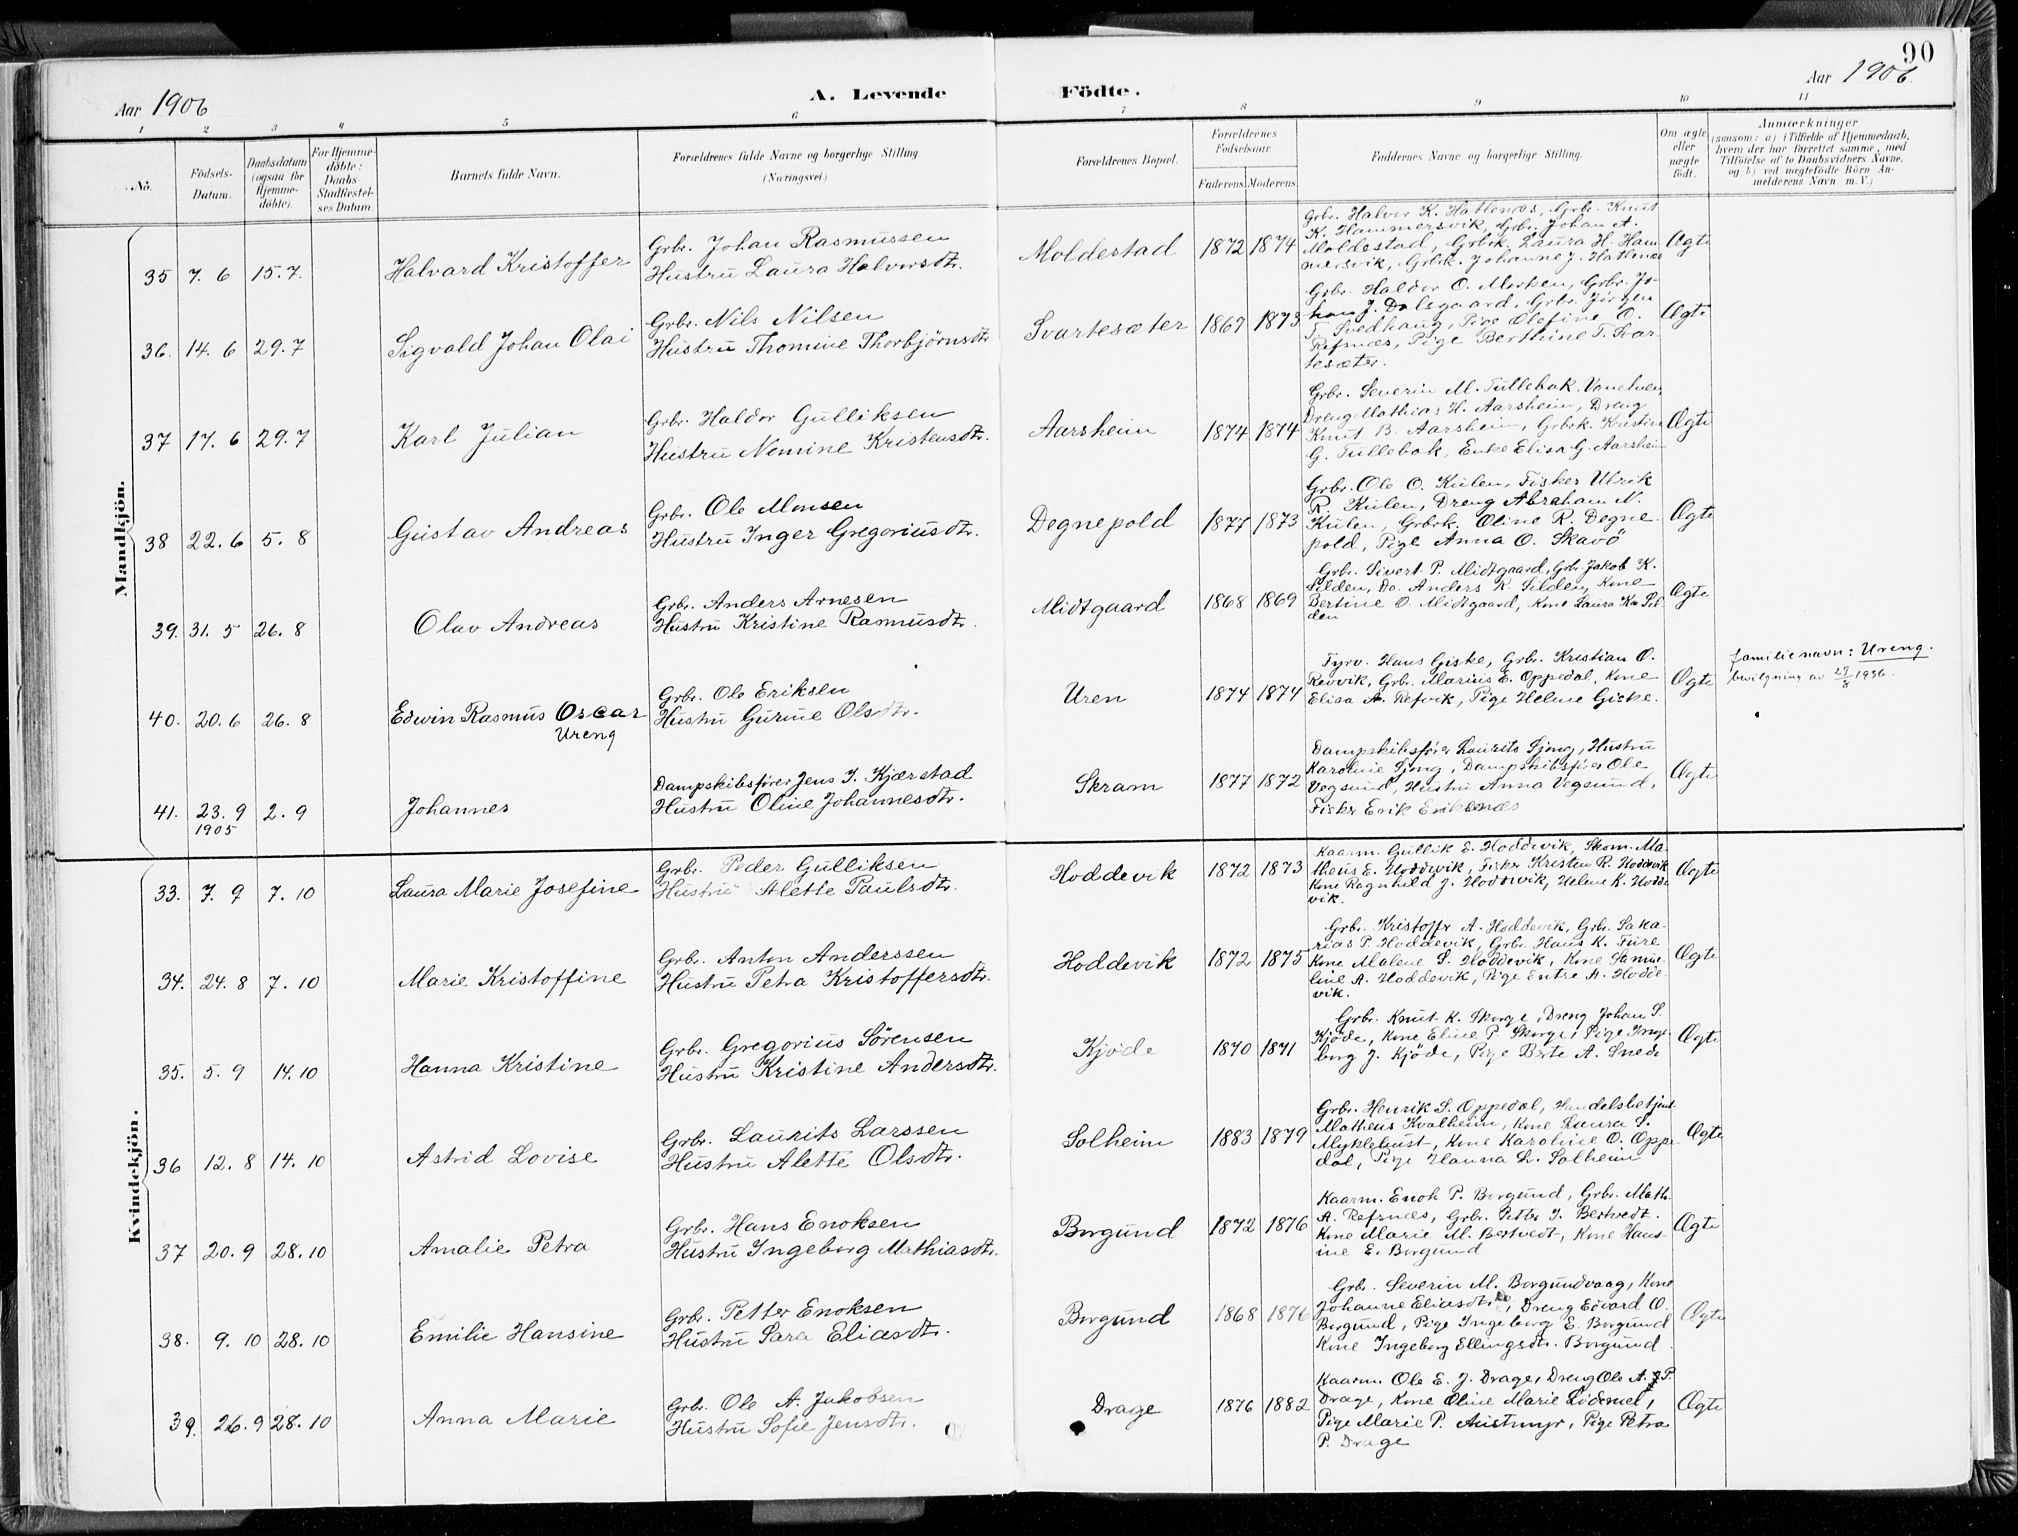 90
Aar 1906
A. Levende Födte.
Aar 1906
1 2 3 4 5 6 7 8 9 10 11
No.
Födsels-Datum.
Daabsdatum (ogsaa for Hjemme-döbte).
For Hjemme-döbte: Daabs-Stadfæstel-ses Datum.
Barnets fulde Navn.
Forældrenes fulde Navne og borgerlige Stilling (Næringsvei)
Forældrenes Bopæl.
Forældrenes Födselsaar.
Faderens. Moderens.
Faddernes Navne og borgerlige Stilling.
Om ægte eller uægte födt.
Anmærkninger
(saasom: a) i Tilfælde af Hjemmedaab, hvem der har forrettet samme, med Tilföielse af to Daabsvidners Navne, og b) ved uægtefödte Börn An-melderens Navn m. V.)
Mandkjön.
35 7. 6 15. 7. Halvard Kristoffer
Grbr. Johan Rasmussen
Hustru Laura Halvorsdtr.
Moldestad 1872 1874
Grbr. Halvor K. Hatlenæs, Grbr. Knut
K. Hammersvik, Grbr. Johan A.
Moldestad, Grbrk. Laura H. Ham-
mersvik, Grbrk. Johanne J. Hatlenæs
Ægte
36. 14. 6 29. 7 Sigvald Johan Olai
Grbr. Nils Nilsen
Hustru Thomine Thorbjørnsdtr
Svartesæter 1869 1873
Grbr. Haldor O. Morken, Grbr. Jo-
han J. Dalegaard, Grbr. Jørgen
T. Svedhaug, Pige Olefine O.
Refsnæs, Pige Berthine T. Svar-
tesæter.
Ægte
37 17. 6 29. 7 Karl Julian
Grbr. Haldor Gulliksen
Hustru Nemine Kristensdtr.
Aarsheim 1874 1874
Grbr. Severin M. Tullebak, Vanelven,
Dreng Mathias H. Aarsheim, Dreng
Knut B. Aarsheim, Grbrk. Kristine
G. Tullebak, Enke Elisa G. Aarsheim
Ægte
38 22. 6 5. 8 Gustav Andreas
Grbr. Ole Monsen
Hustru Inger Gregoriusdtr.
Degnepold 1877 1873
Grbr. Ole O. Kulen, Fisker Ulrik
R. Kulen, Dreng Abraham N.
Kulen, Grbrk. Oline R. Degne-
pold, Pige Anna O. Skavö
Ægte
39. 31. 5 26. 8 Olav Andreas
Grbr. Anders Arnesen
Hustru Kristine Rasmusdtr.
Midtgaard 1868 1869
Grbr. Sivert P. Midtgaard, Grb. Jakob K.
Silden, Do. Anders R. Silden, Kone
Bertine O. Midtgaard, Kone Laura Sil-
den
Ægte
40. 20. 6 26. 8 Edwin Rasmus Oscar
Ureng
Grbr. Ole Eriksen
Hustru Gurine Olsdtr.
Uren 1874 1874
Fyrv. Hans Giske, Grbr. Kristian O.
Revvik, Grbr. Marius E. Oppedal, Kone
Elisa A. Refvik, Pige Helene Giske.
Ægte
familienavn: Ureng.
bevilgning av 27/8 1936.
41. 23. 9 2. 9 Johannes
1905
Dampskibsfører Jens J. Kjærstad
Hustru Oline Johannesdtr.
Skram 1877 1872
Dampskibsfører Laurits Sjong, Hustru
Karoline Sjong, Dampskibsfører Ole
Vegsund, Hustru Anna Vegsund,
Fisker Erik Eriksnæs
Ægte
Kvindekjön.
33. 7. 9 7. 10 Laura Marie Josefine
Grbr. Peder Gulliksen
Hustru Alette Paulsdtr.
Hoddevik 1872 1873
Kaarm. Gullik E. Hoddevik, Skom. Ma-
theus E. Hoddevik, Fisker Kristen R. Hoddevik
Kone Ragnhild J. Hoddevik, Helene K. Hodde-
vik.
Ægte
34. 24. 8 7. 10 Marie Kristoffine
Grbr. Anton Anderssen
Hustru Petra Kristoffersdtr.
Hoddevik 1872 1875
Grbr. Kristoffr A. Hoddevik, Grbr. Saka-
rias P. Hoddevik, Grbr. Hans K. Fure
Kone Malene S. Hoddevik, Kone Samue-
line A. Hoddevik, Pige Entre A. Hodde-
vik.
Ægte
35. 5. 9 14. 10 Hanna Kristine
Grbr. Gregorius Sørensen
Hustru Kristine Andersdtr.
Kjøde 1870 1871
Grbr. Knut K. Skorge, Dreng Johan S.
Kjøde, Kone Eline P. Skorge, Pige Inge-
borg J. Kjöde, Pige Brte A. Snede
Ægte
36 12. 8 14. 10 Astrid Lovise
Grbr. Laurits Larssen
Hustru Alette Olsdtr.
Solheim 1883 1879
Grbr. Henrik S. Oppedal, Handelsbetjent
Matheus Kvalheim, Kone Laura S.
Myklebust, Kone Karoline O. Oppe-
dal, Pige Hanna L. Solheim
Ægte
37 20. 9 28. 10 Amalie Petra
Grbr. Hans Enoksen
Hustru Ingeborg Mathiasdtr.
Borgund 1872 1876
Kaarm. Enok P. Borgund, Grbr. Math.
A. Refsnæs, Grbr. Petter J. Bertvedt.
Kone Marie M. Bertvedt, Kone Hans-
ine E. Borgund
Ægte
38. 9. 10 28. 10 Emilie Hansine
Grbr. Petter Enoksen
Hustru Sara Eliasdtr.
Borgund 1868 1876
Grbr. Severin M. Borgundvaag, Kone
Johanne Eliasdtr, Dreng Edvard O.
Borgund, Pige Ingeborg E. Borgund
Kone Ingeborg Ellingsdtr. Borgund.
Ægte
39. 26. 9 28. 10 Anna Marie
Grbr. Ole A. Jakobsen
Hustru Sofie Jensdtr.
Drage 1876 1882
Kaarm. Ole E. J. Drage, Dreng Ole A. J. P.
Drage, Kone Oline Marie Lødemel,
Pige Marie P. Austmyr, Pige Petra
P. Drage
Ægte